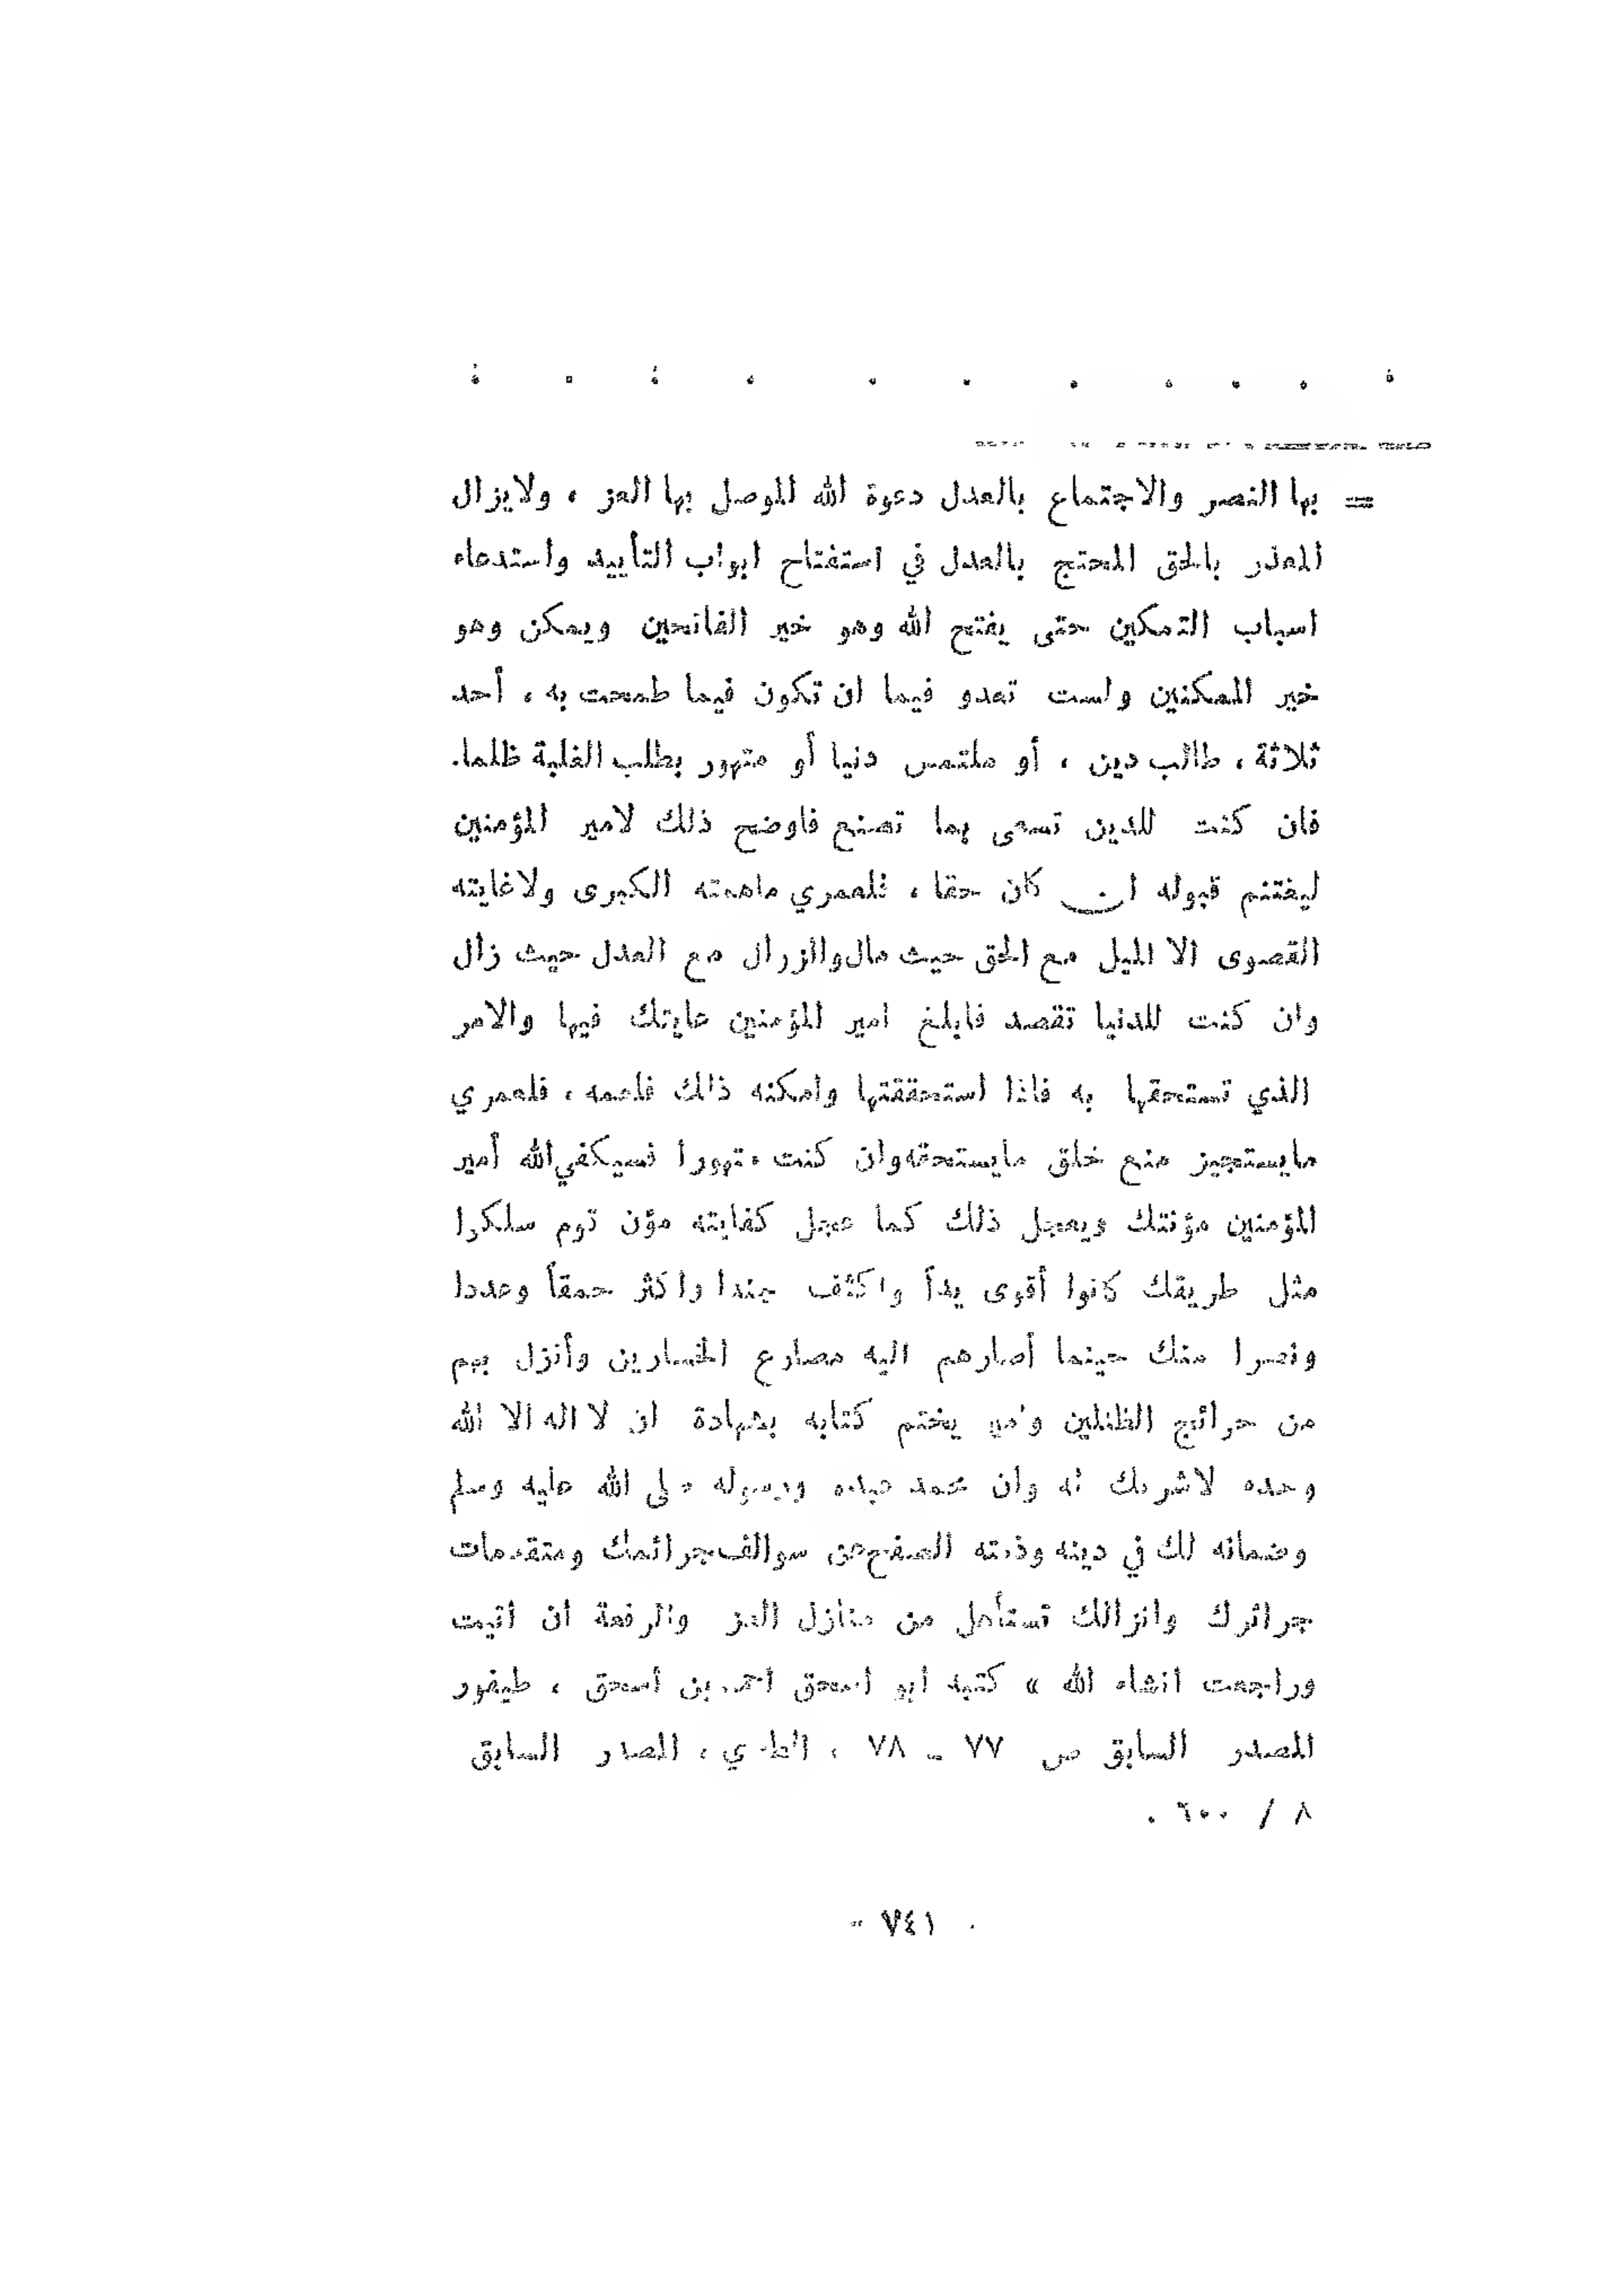 = بها النصر والاجتماع بالعدل دعوة الله الموصل بها العز ، ولايزال
المعذر بالحق المحتج بالعدل في استفتاح ابواب التأييد واستدعاء
اسباب التمكين حتى يفتح الله وهو خير الفاتحين ويمكن وهو
خير الممكنين ولست تعدو فيما ان تكون فيما طمحت به ، أحد
ثلاثة ، طالب دين ، أو ملتمس دنيا أو متهور بطلب الغلبة ظلما.
فان كنت للدين تسعى بما تصنع فاوضح ذلك لامير المؤمنين
ليغتنم قبوله ان كان حقا ، فلعمري ماهمته الكبرى ولاغايته
القصوى الا الميل مع الحق حيث مال والزوال مع العدل حيث زال
وان كنت للدنيا تقصد فابلغ امير المؤمنين غايتك فيها والامر
الذي تستحقها به فاذا استحققتها وامكنه ذالك فلعمه ، فلعمري
مايستجيز منع خلق مايستحقه وان كنت متهورا فسيكفي الله أمير
المؤمنين مؤنتك ويعجل ذلك كما عجل كفايته مؤن قوم سلكوا
مثل طريقك كانوا أقوى يداً واكثف جندا واكثر حمقاً وعددا
ونصرا منك حينما أصارهم اليه مصارع الخسارين وأنزل بهم
من حرائج الظالمين يختم كتابه بشهادة ان لا اله الا الله
وحده لاشريك له وان محمد عبده ورسوله صلى الله عليه وسلم
وضمانه لك في دينه وذمته الصفح عن سوالف جرائمك ومتقدمات
جرائرك وانزالك تستأهل من منازل العز والرفعة ان اتيت
وراجعت انشاء الله » كتبه ابو اسحق احمد بن اسحق ، طيفور
المصدر السابق ص ٧٧ - ٧٨ ، الطبري ، المصدر السابق
٨ / ٦٠٠ .
- ٧٤١ -